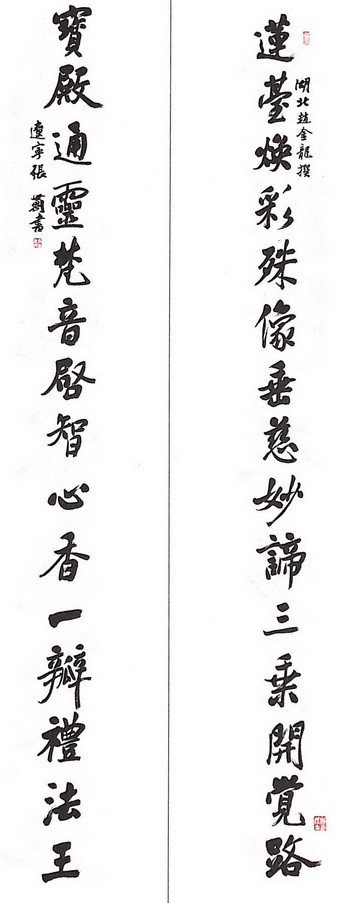 蓮臺煥彩殊像垂慈妙諦三乗開覚路
湖北趙金龍撰
寶殿通靈梵音啓智心香一瓣禮法王
遼寧張蔮書